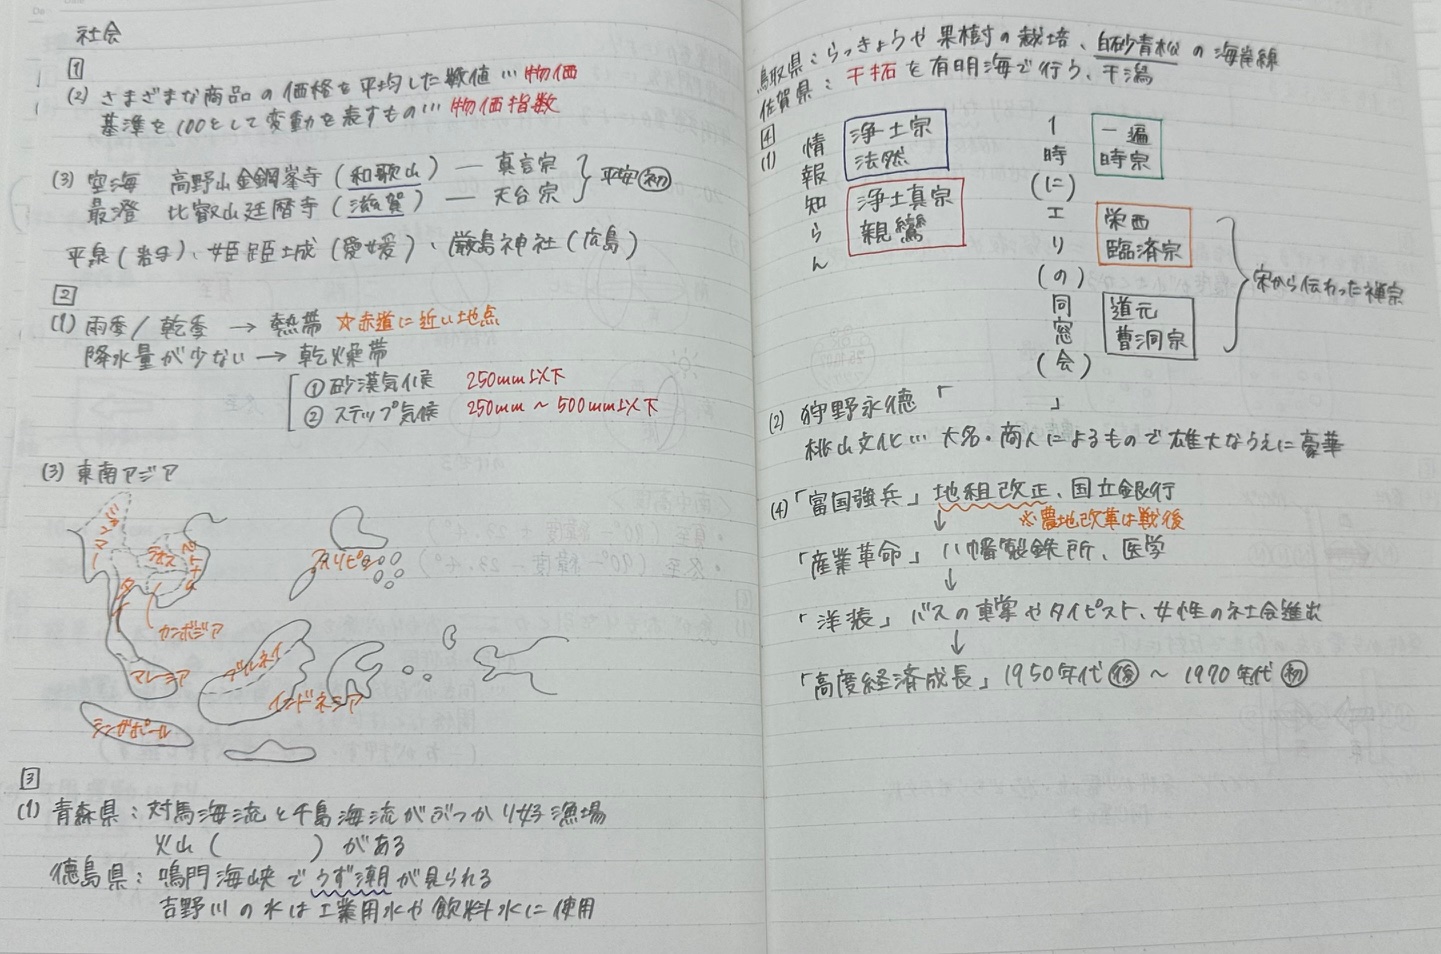 社会
1
(2) さまざまな商品の価格を平均した数値…物価
基準を100として変動を表すもの…物価指数
(3) 空海 高野山金剛峯寺(和歌山) — 真言宗
最澄 比叡山延暦寺(滋賀) — 天台宗
平安初
平泉(岩手)、姫路城(愛媛)、厳島神社(広島)
2
(1) 雨季/乾季 → 熱帯 ☆赤道に近い地点
降水量が少ない → 乾燥帯
① 砂漠気候 250mm以下
② ステップ気候 250mm ~ 500mm以下
(3) 東南アジア
ミャンマー
ラオス
ベトナム
タイ
カンボジア
フィリピン
マレーシア
ブルネイ
インドネシア
シンガポール
3
(1) 青森県:対馬海流と千島海流がぶつかり好漁場
火山( )がある
徳島県:鳴門海峡でうず潮が見られる
吉野川の水は工業用水や飲料水に使用
鳥取県:らっきょうや果樹の栽培、白砂青松の海岸線
佐賀県:干拓を有明海で行う、干潟
4
(1)
情報知らん
浄土宗
法然
浄土真宗
親鸞
1時(に)エり(の)同窓(会)
一遍
時宗
栄西
臨済宗
道元
曹洞宗
宋から伝わった禅宗
(2) 狩野永徳「 」
桃山文化…大名・商人によるもので雄大なうえに豪華
(4)「富国強兵」地組改正、国立銀行
↓ ※農地改革は戦後
「産業革命」八幡製鉄所、医学
↓
「洋装」バスの車掌やタイピスト、女性の社会進出
↓
「高度経済成長」1950年代後~1970年代初